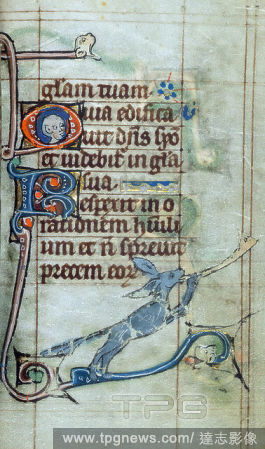 glam tuam
Quia edifica
uit dns syo
et uidebit in gla
sua
Respexit in o
rationem humili
um et n spreuit
precem eor
TPG
www.tpgnews.com/ 達志影像